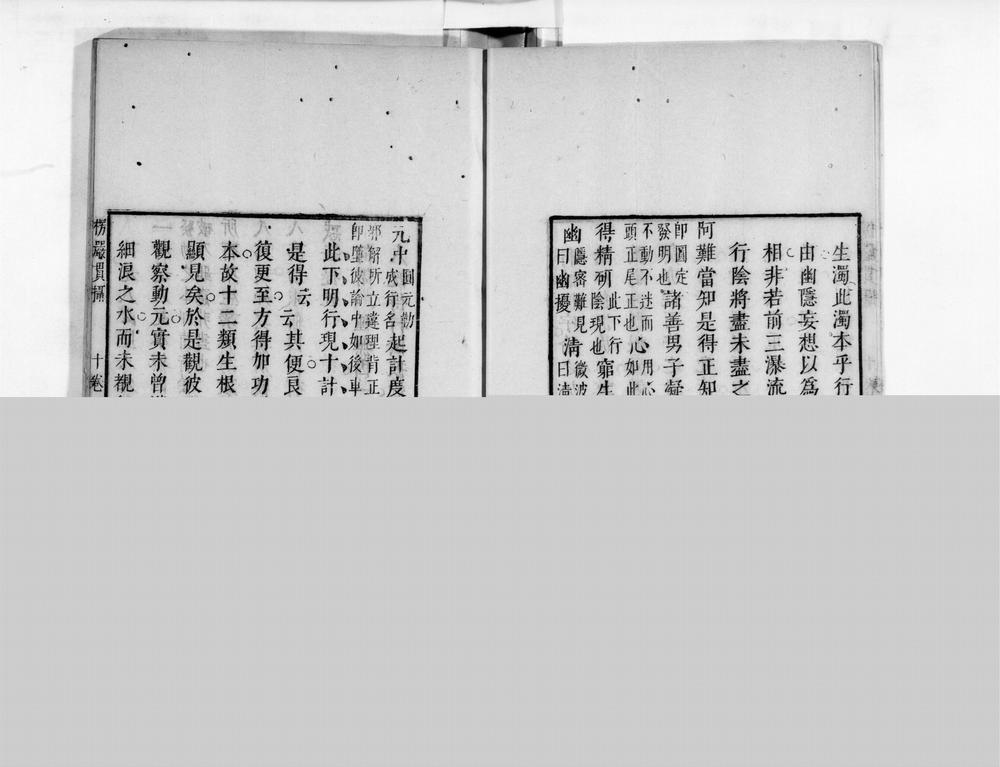 生濁此濁本乎行
由幽隱妄想以爲
相非若前三瀑流
行陰將盡未盡之
阿難當知是得正知
即圓定
發明也
諸善男子凝
不動不迷而
頭正尾正也
心
用心
如此
得精研
此下行
陰現也
窮生
幽
隱密難見
曰幽
清
微波
擾曰清
元中
圓元勸
成行名
起計度
邪解所立違理背正
即墮彼論中如後車
此下明行現十計
是得云云其便良
復更至方得加功
本故十二類生根
顯見矣於是觀彼
觀察動元實未曾
細浪之水而未觀
楞嚴貫攝
十卷